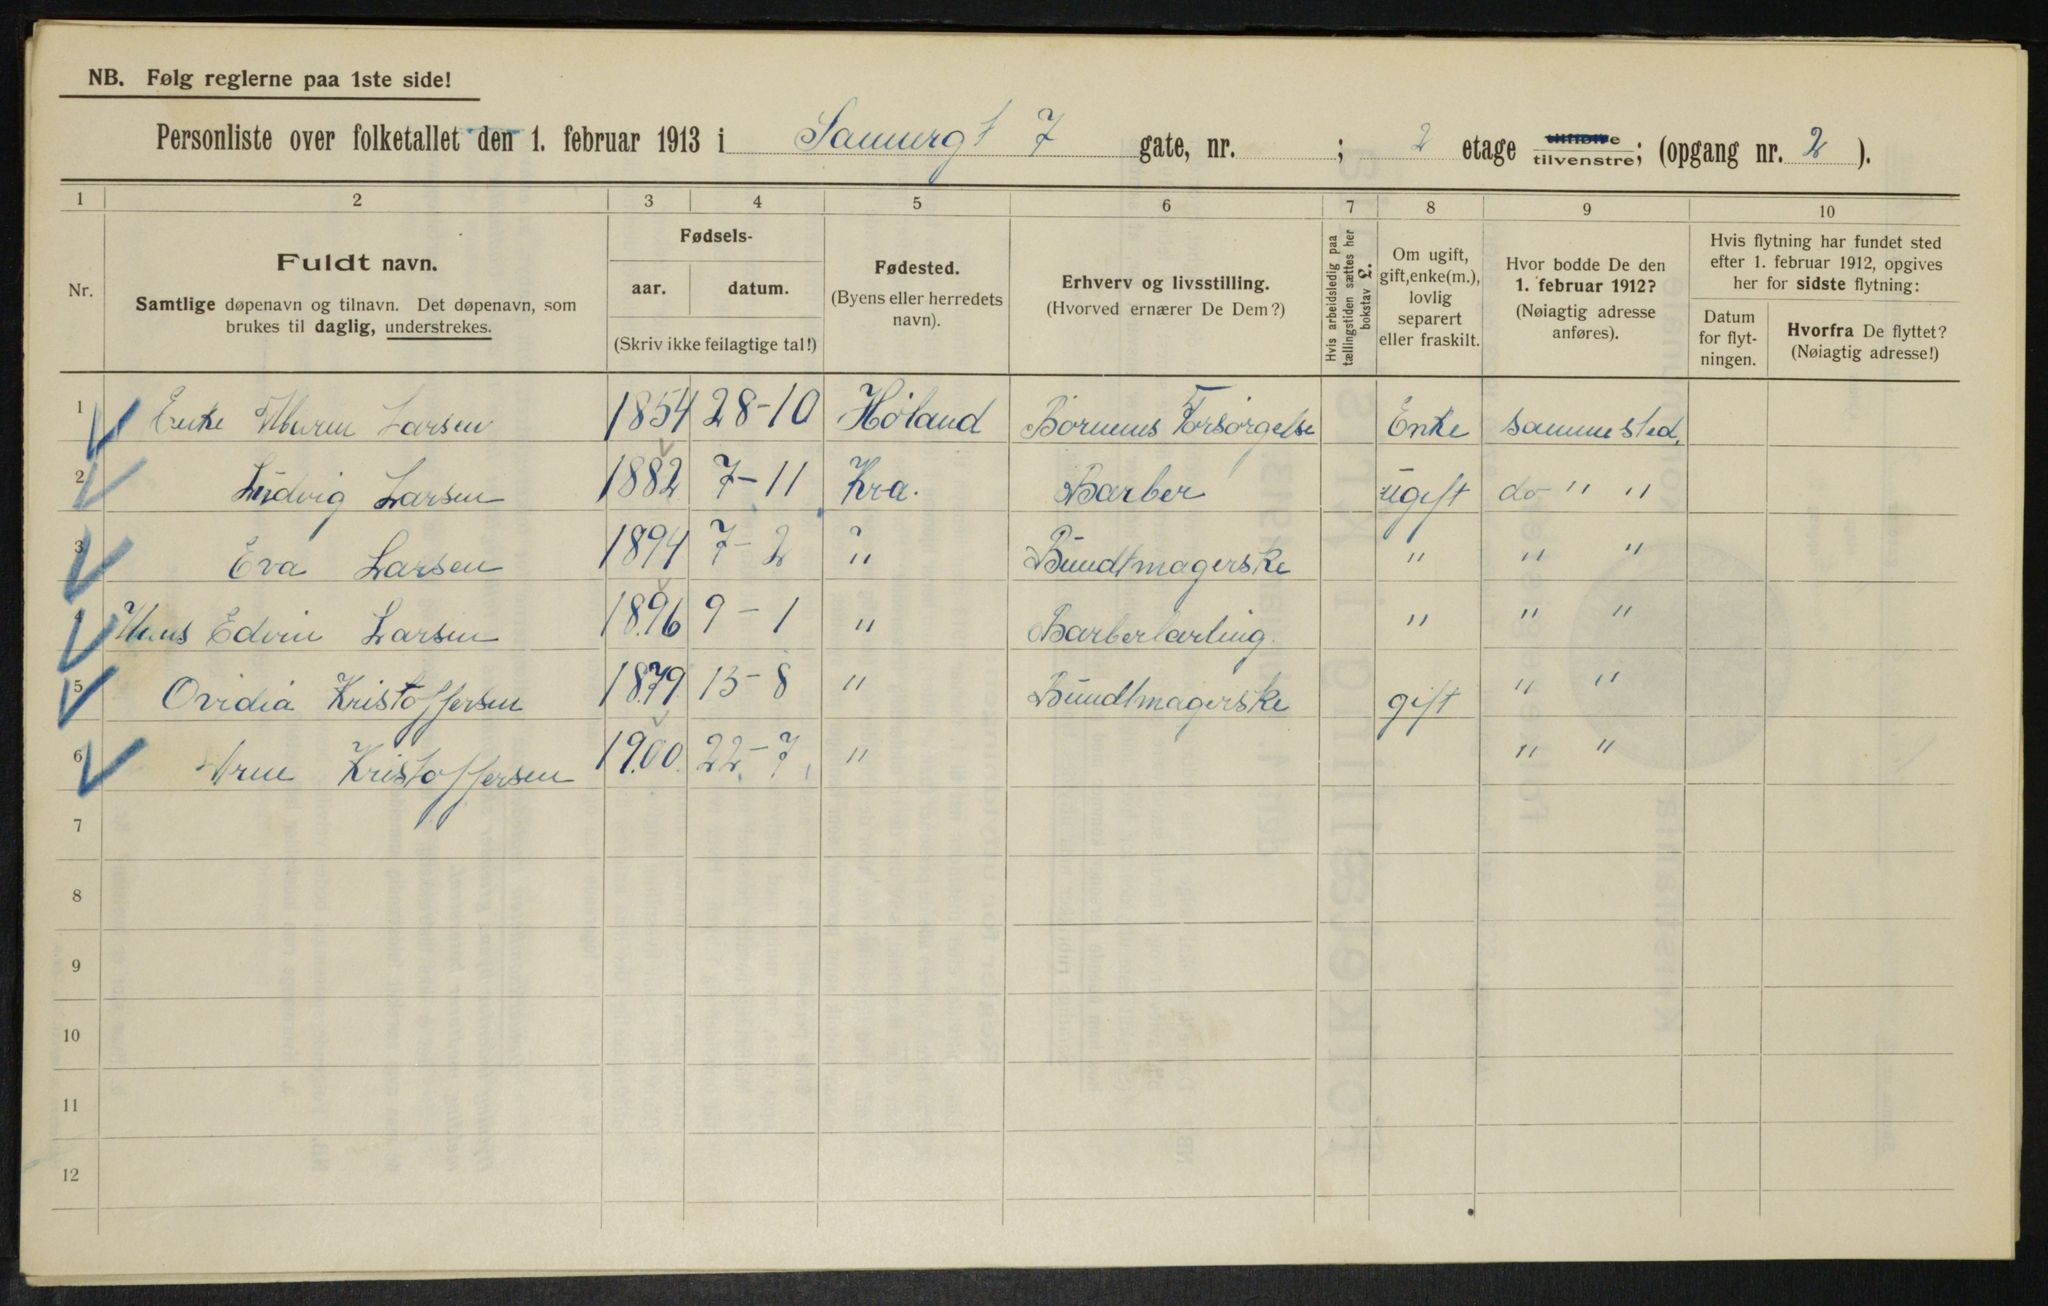 NB. Følg reglerne paa 1ste side!
Personliste over folketallet den 1. februar 1913 i Sannergt 7 gate, nr. ; 2 etage tilvenstre; (opgang nr. 2 ).
1 2 3 4 5 6 7 8 9 10
Nr.
Fuldt navn.
Samtlige døpenavn og tilnavn. Det døpenavn, som
brukes til daglig, understrekes.
Fødsels-
aar. datum.
(Skriv ikke feilagtige tal!)
Fødested.
(Byens eller herredets
navn).
Erhverv og livsstilling.
(Hvorved ernærer De Dem?)
Hvis arbeidsledig paa
tællingstiden sættes her
bokstav L.
Om ugift,
gift, enke(m.),
lovlig
separert
eller fraskilt.
Hvor bodde De den
1. februar 1912?
(Nøiagtig adresse
anføres).
Hvis flytning har fundet sted
efter 1. februar 1912, opgives
her for sidste flytning:
Datum
for flyt-
ningen.
Hvorfra De flyttet?
(Nøiagtig adresse!)
1 Enke Larsen 1854 28-10 Høland Børnenes Forsørgelse Enke sammested.
2 Ludvig Larsen 1882 7-11 Kra. Barber ugift do " "
3 Eva Larsen 1894 7-2 " Bundtmagerske " " "
4 Hans Edvin Larsen 1896 9-1 " Barberlærling. " " "
5 Ovidia Kristoffersen 1879 13-8 " Bundtmagerske gift " "
6 Arne Kristoffersen 1900 22-7 " " "
7
8
9
10
11
12